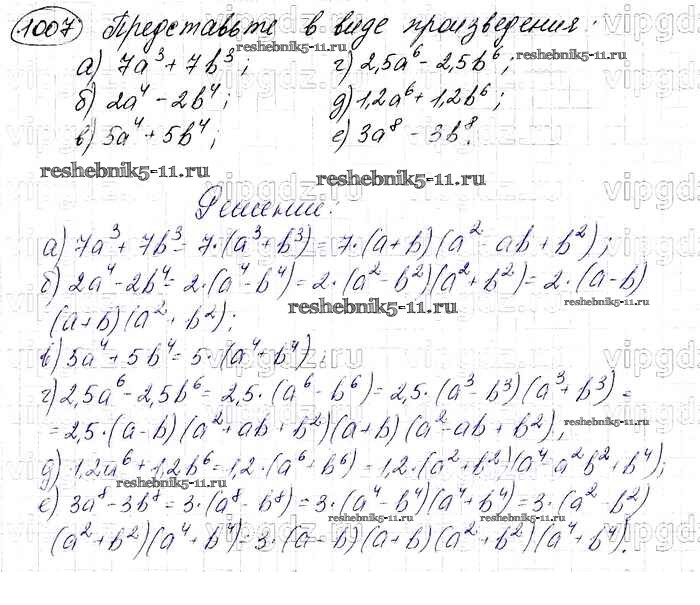 1007 Представьте в виде произведения:
а) 7a³ + 7b³; г) 2,5a⁶ - 2,5b⁶;
б) 2a⁴ - 2b⁴; д) 1,2a⁶ + 1,2b⁶;
в) 5a⁴ + 5b⁴; е) 3a⁸ - 3b⁸.
reshebnik5-11.ru
Решение:
а) 7a³ + 7b³ = 7·(a³ + b³) = 7·(a+b)(a² - ab + b²);
б) 2a⁴ - 2b⁴ = 2·(a⁴ - b⁴) = 2·(a² - b²)(a² + b²) = 2·(a-b)
(a+b)(a² + b²);
в) 5a⁴ + 5b⁴ = 5·(a⁴ + b⁴);
г) 2,5a⁶ - 2,5b⁶ = 2,5·(a⁶ - b⁶) = 2,5·(a³ - b³)(a³ + b³) =
= 2,5·(a-b)(a² + ab + b²)(a+b)(a² - ab + b²);
д) 1,2a⁶ + 1,2b⁶ = 1,2·(a⁶ + b⁶) = 1,2·(a² + b²)(a⁴ - a²b² + b⁴);
е) 3a⁸ - 3b⁸ = 3·(a⁸ - b⁸) = 3·(a⁴ - b⁴)(a⁴ + b⁴) = 3·(a² - b²)
(a² + b²)(a⁴ + b⁴) = 3·(a-b)(a+b)(a² + b²)(a⁴ + b⁴).